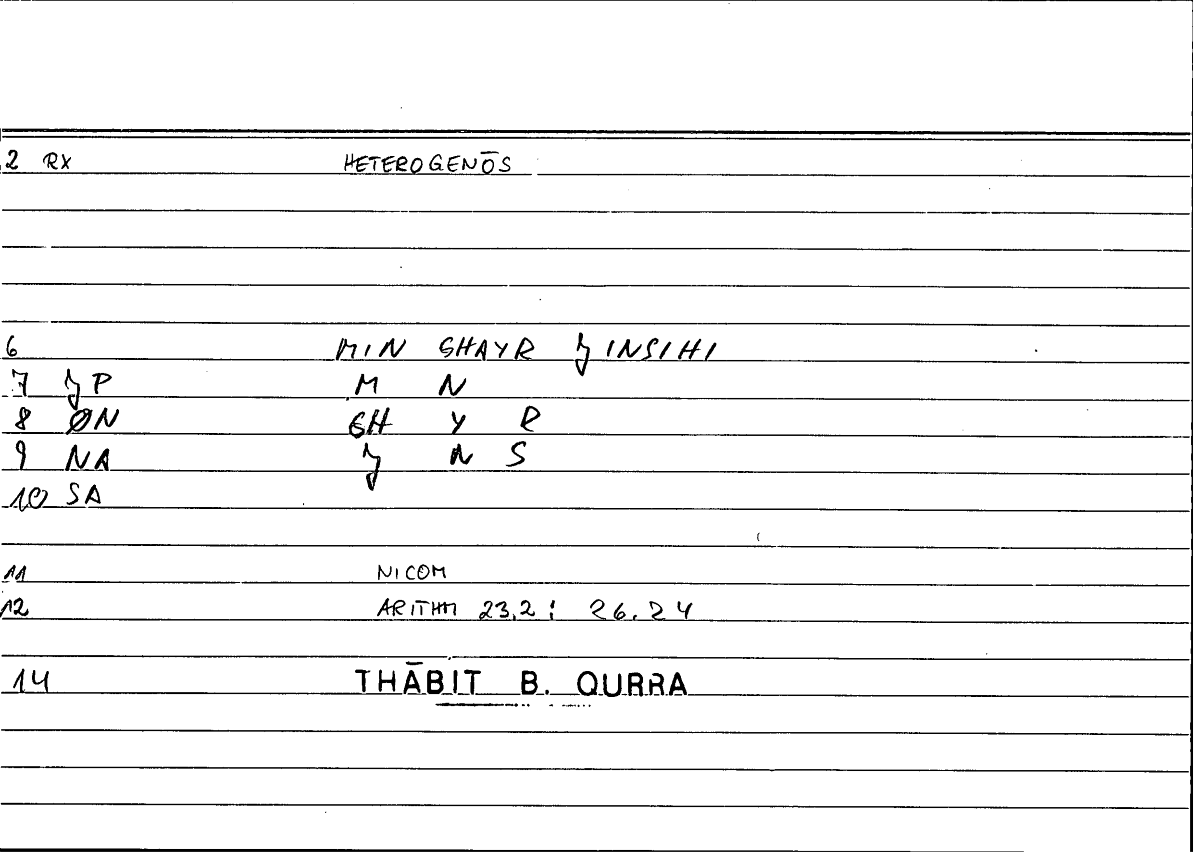 2 RX HETEROGENŌS
6 MIN GHAYR ǦINSIHI
7 ǦP M N
8 ØN GH Y R
9 NA Ǧ N S
10 SA
11 NICOM
12 ARITHM 23,2 : 26,24
14 THĀBIT B. QURRA